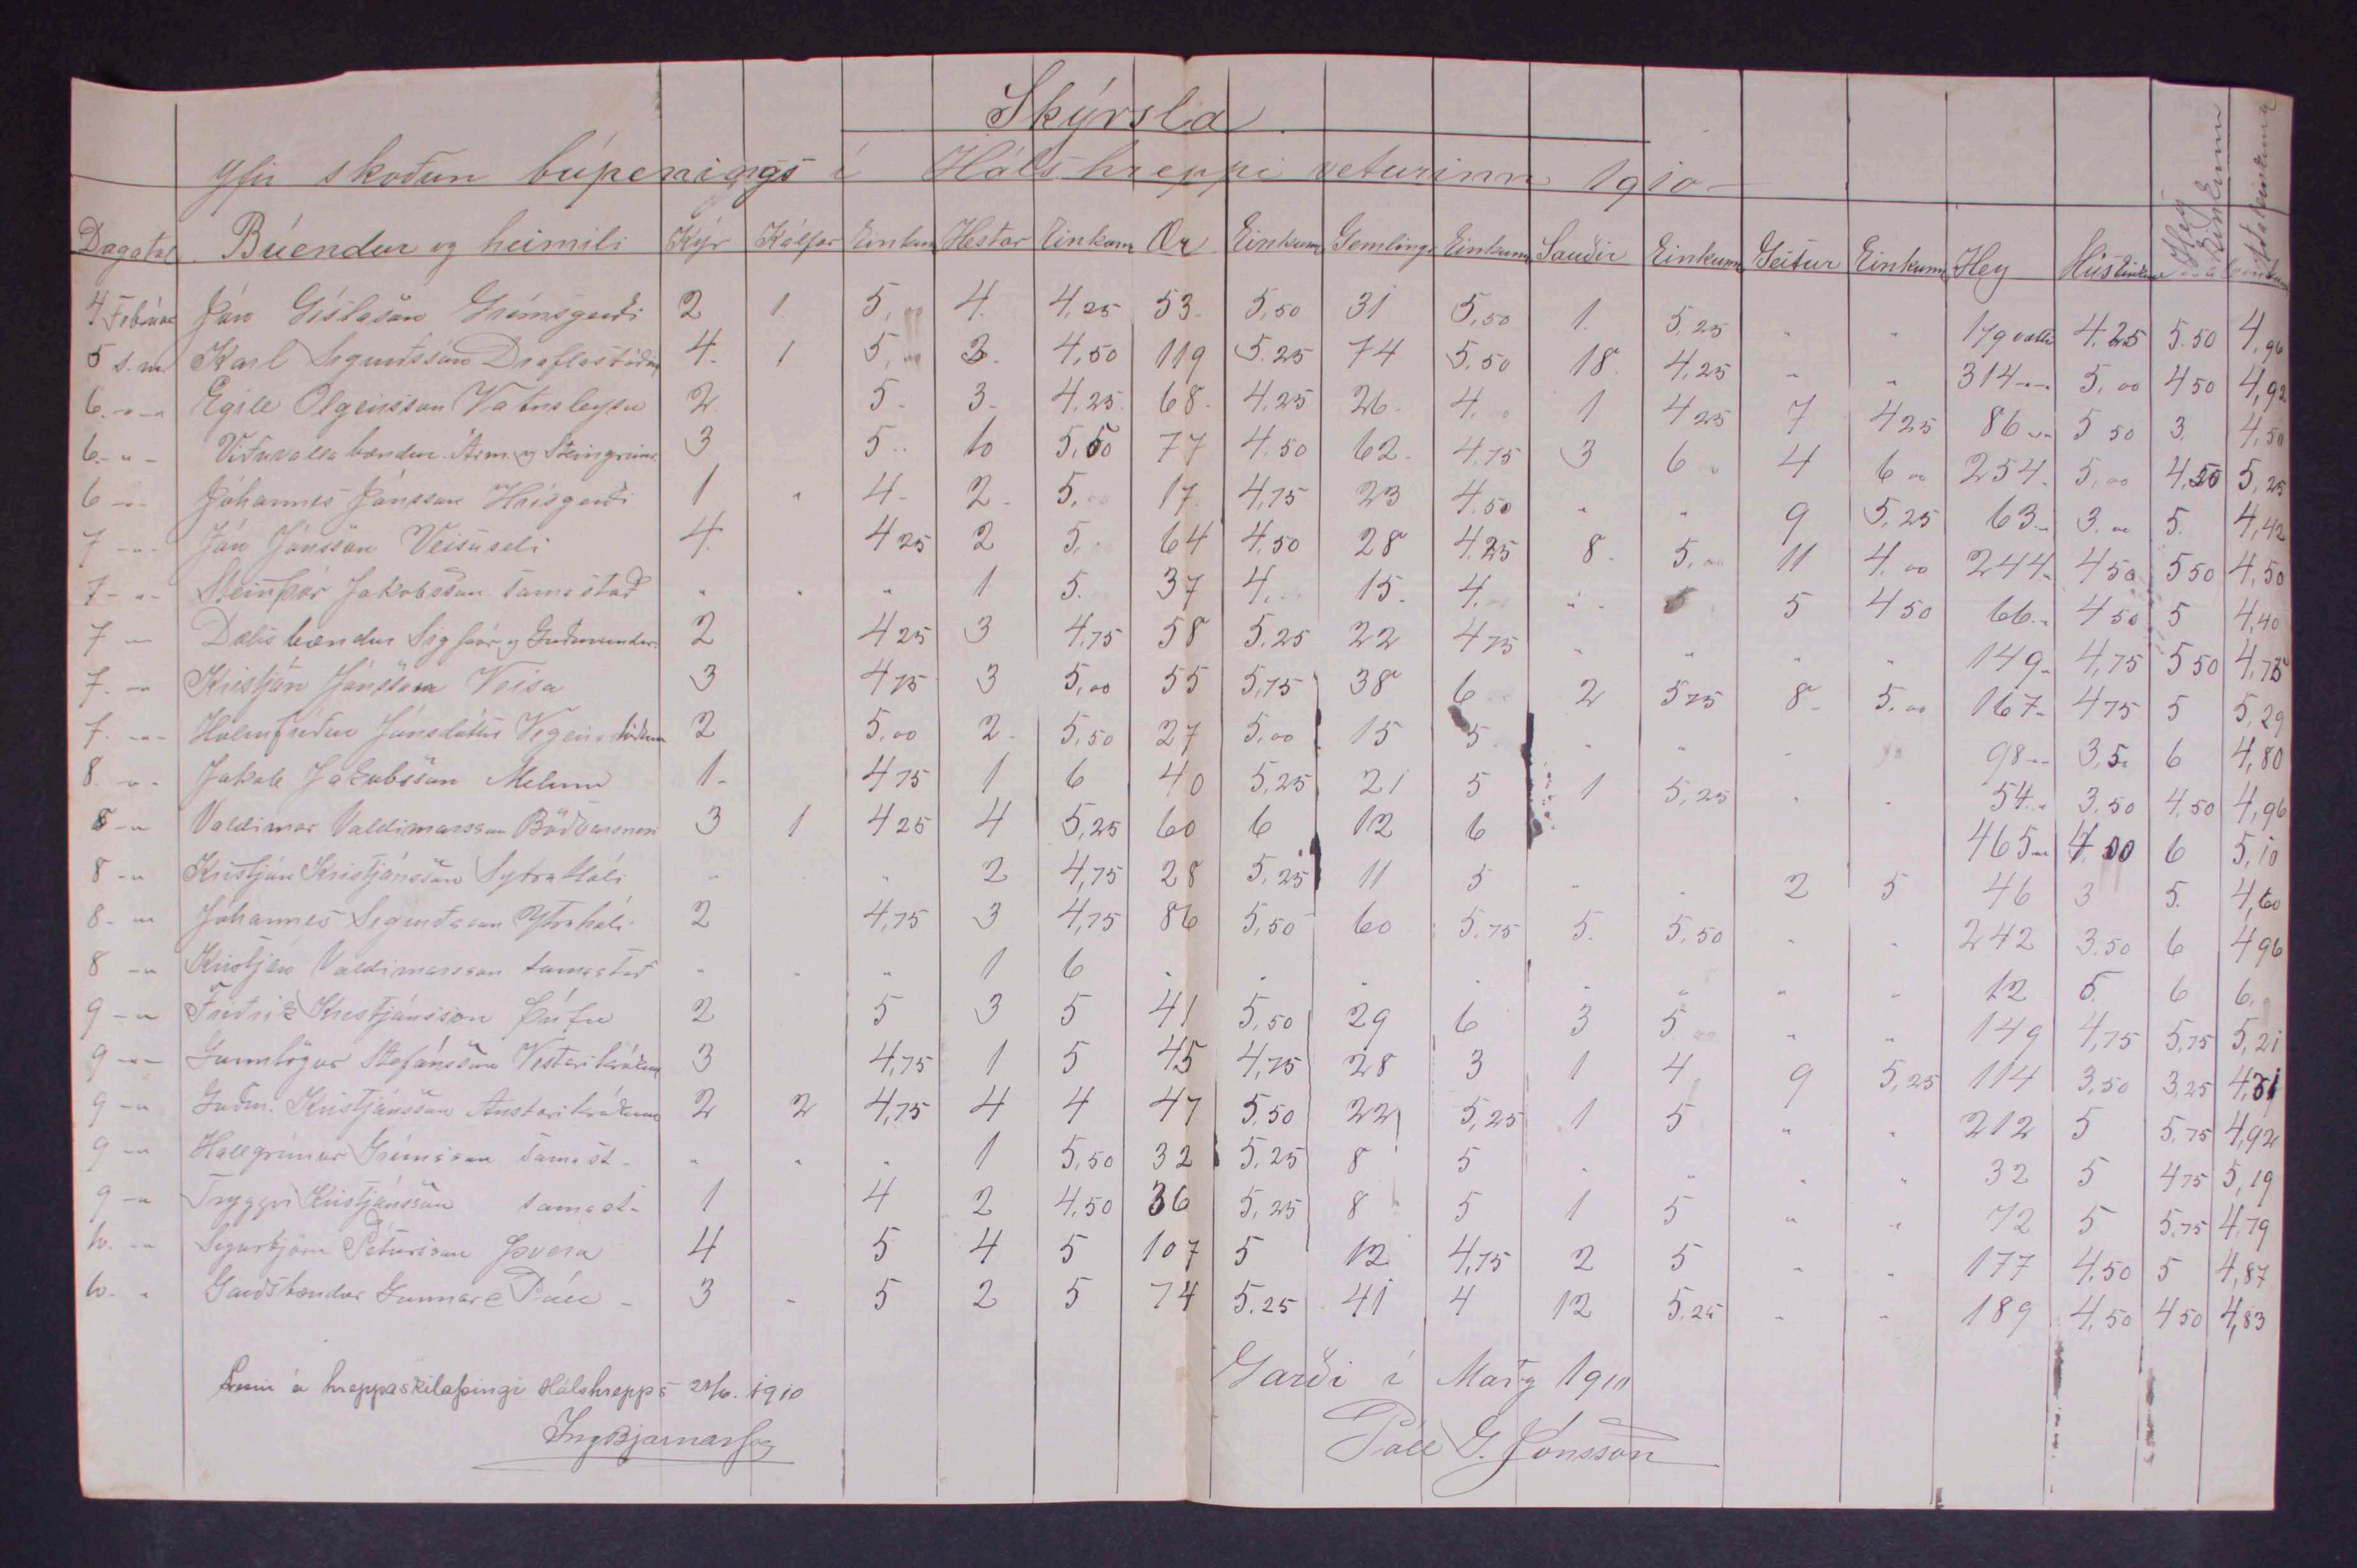 Skýrsla
yfir skoðun búpenings í Hálshreppi veturinn 1910
Dagatal Búendur og heimili Kýr Kálfar Einkunn Hestar Einkunn Ær Einkunn Gemlingr Einkunn Sauðir Einkunn Geitur Einkunn Hey Hús Einkunn Hey Einkunn Aðaleinkunn
4 Febrúar Jón Gíslason Grímsgerði 2 1 5,00 4. 4,25 53. 5,50 31 5,50 1. 5,25 " " 179 4.25 5.50 4,96
5 s.m Karl Sigurðsson Draflastöðum 4. 1 5,00 3. 4,50 119 5.25 74 5.50 18. 4,25 " " 314 5,00 4 50 4,92
6. -"- Egill Olgeirsson Vatnsleysu 2 5. 3. 4,25 68. 4,25 26. 4. 1 4 25 7 4 25 86 5 50 3. 4,50
6. -"- Víðivalla bændur Árm. og Steingríms. 3 5.. 10 5,50 77 4.50 62. 4.75 3 6 4 6 00 254. 5,00 4,50 5,25
6 -"- Jóhannes Jónsson Hrísgerði 1 " 4 2 5.00 17. 4,75 23 4.50 " " 9 5,25 63 3.00 5. 4,42
7 -"- Jón Jónsson Veisuseli 4. 4 25 2 5. 64 4,50 28 4.25 8. 5.00 11 4.00 244 4 50 5 50 4,50
7 -"- Steinþór Jakobsson samastað " " " 1 5. 37 4. 15. 4. " 5 4 50 66 4 50 5 4,40
7 -"- Dæls bændur Sigþór og Guðmundur 2 4 25 3 4,75 58 5,25 22 4 75 " " " " 149 4,75 5 50 4,75
7. -"- Kristján Jónsson Veisa 3 4 75 3 5,00 55 5,75 38 6 2 5 75 8 5.00 167 4 75 5 5,29
7. -"- Hólmfríður Jónsdóttir 2 5.00 2 5,50 27 5,00 15 5 " " " 98 3,5 6 4,80
8 -"- Jakob Jakobsson Melum 1 4 75 1 6 40 5,25 21 5 1 5,25 " " 54 3.50 4.50 4,96
8 -"- Valdimar Valdimarsson Böðvarsnesi 3 1 4 25 4 5,25 60 6 12 6 465 4,00 6 5,10
8 -"- Kristján Kristjánsson Sytra Hóli " " " 2 4,75 28 5,25 11 5 " " 2 5 46 3 5. 4,60
8 -"- Jóhannes Sigurðsson Ytrahóli 2 4,75 3 4,75 86 5,50 60 5.75 5. 5,50 " " 242 3.50 6 4 96
8 -"- Kristján Valdimarsson samastað " " " 1 6 " " " " " " " " 12 6. 6 6.
9 -"- Friðrik Kristjánsson Þúfu 2 5 3 5 41 5,50 29 6 3 5 " " 149 4,75 5,75 5,21
9 -"- Gunnlögur Stefánsson Vestarikrókum 3 4,75 1 5 45 4,75 28 3 1 4 9 5,25 114 3,50 3,25 4,31
9 -"- Guðm. Kristjánsson Austarikrókum 2 2 4,75 4 4 47 5.50 22 5,25 1 5 " " 212 5 5,75 4,92
9 -"- Hallgrímur Grímsson samast. " " " 1 5,50 32 5,25 8 5 " " " " 32 5 4 75 5,19
9 -"- Tryggvi Kristjánsson samast. 1 4 2 4.50 36 5,25 8 5 1 5 " " 72 5 5,75 4,79
10. -"- Sigurbjörn Pétursson Þverá 4 5 4 5 107 5 12 4,75 2 5 " " 177 4.50 5 4,87
10. " Garðsbændur Gunnar & Páll 3 - 5 2 5 74 5.25 41 4 12 5.25 " " 189 4,50 4 50 4,83
Garði í Marz 1910
Páll G. Jónsson
á hreppaskilaþingi Hálshrepps 21/6. 1910
IngBjarnarson